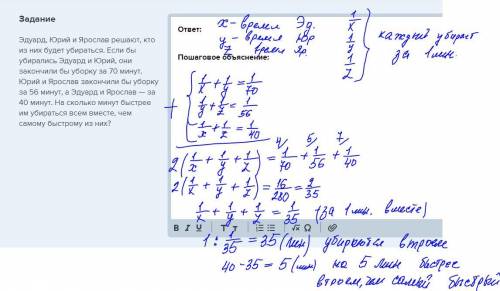 Задание
Эдуард, Юрий и Ярослав решают, кто
из них будет убираться. Если бы
убирались Эдуард и Юрий, они
закончили бы уборку за 70 минут,
Юрий и Ярослав закончили бы уборку
за 56 минут, а Эдуард и Ярослав — за
40 минут. На сколько минут быстрее
им убираться всем вместе, чем
самому быстрому из них?
Ответ:
x - время Эд.
y - время Юр
z время Яр.
1/x
1/y
1/z
каждый убирает
за 1 мин.
Пошаговое объяснение:
1/x + 1/y = 1/70
+ 1/y + 1/z = 1/56
1/x + 1/z = 1/40
4/ 5/ 7/
2(1/x + 1/y + 1/z) = 1/70 + 1/56 + 1/40
2(1/x + 1/y + 1/z) = 16/280 = 2/35
1/x + 1/y + 1/z = 1/35 (за 1 мин. вместе)
B I U Tₓ T² T₂ √π Ω
1 : 1/35 = 35 (мин) убираются втроем
40 - 35 = 5 (мин) на 5 мин быстрее
втроем, чем самый быстрый